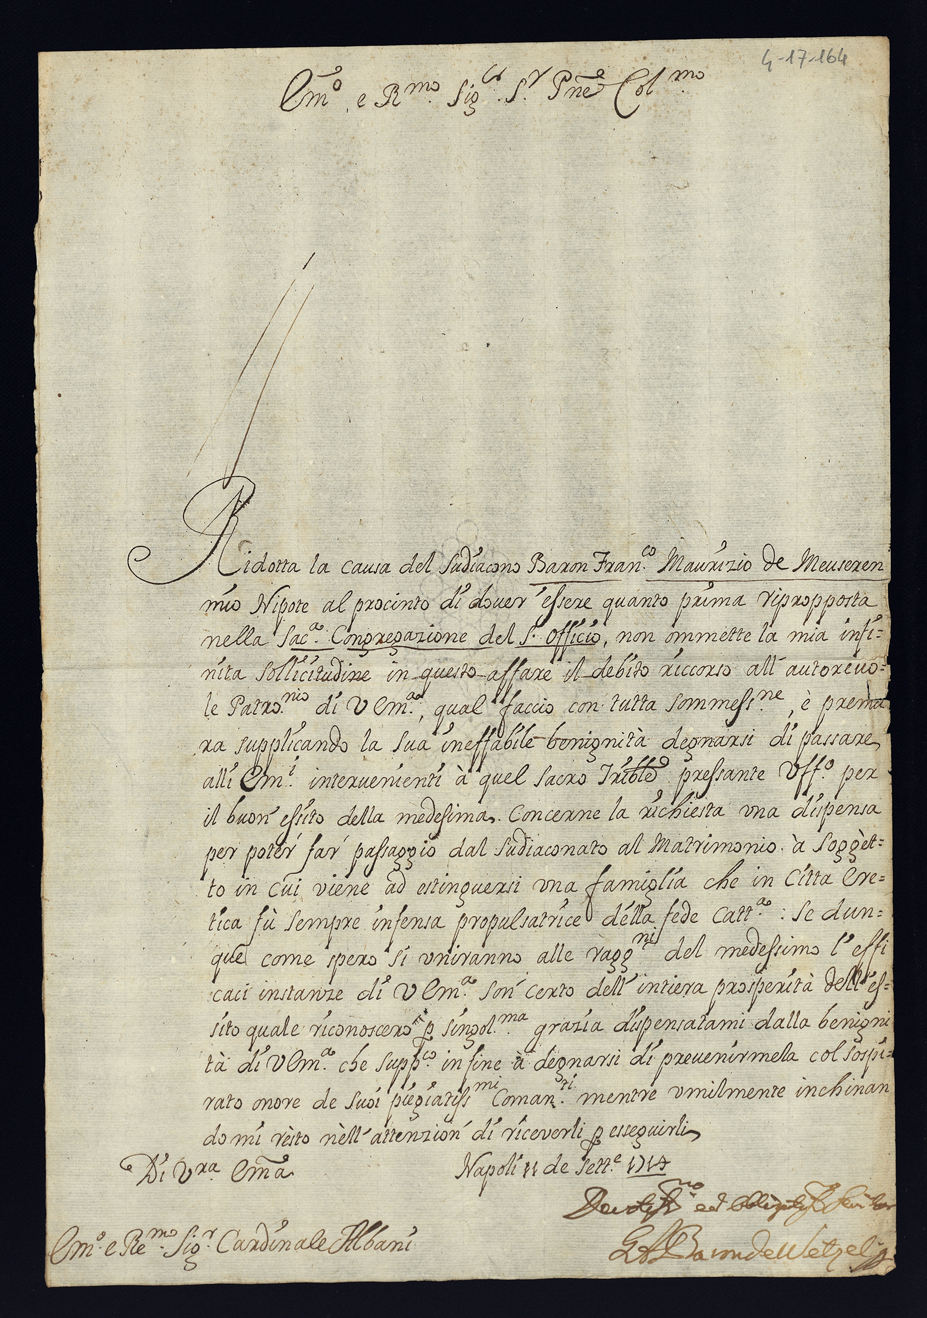 4-17-164
Em̃o e Rmo. Sigr. Sr. Pñe Colmo.
Ridotta la causa del Sudiacono Baron Franco. Maurizio de Meuseren
mio Nipote al procinto di douer' essere quanto prima ripropposta
nella Saca. Congregazione del S. Officio, non ommette la mia infi=
nita sollicitudine in questo affare il debito riccorso all' autoreuo=
le Patronio. di V Ema., qual faccio con tutta sommessne, è
ra supplicando la sua ineffabile benignità degnarsi di passare
alli Emi. intervenienti à quel sacro Trible pressante Uffo. per
il buon' essito della medesima. Concerne la richiesta una dispensa
per poter' far' passaggio dal Sudiaconato al Matrimonio à soggèt=
to in cui viene ad estinguersi una famiglia che in Città Ere=
tica fù sempre infensa propulsatrice della fede Catta.: Se dun=
que come spero si uniranno alle raggni del medessimo l'effi
caci instanze di V Ema. son' certo dell' intiera prosperità dell' es=
sito quale riconoscerò p singolma grazia dispensatami dalla benigni
tà di VEma. che suppco. infine à degnarsi di preuenirmela col sospi=
rato onore de suoi pregiatissmi Comanti. mentre umilmente inchinan
domi resto nell' attenzion' di riceverli p esseguirli
Di Vra. Em̃a Napoli 11 de Sette 1714
Devotissmo ed obligatiss Seruitor
Baron de Wetzel
Emo. e Remo. Sigr. Cardinale Albani